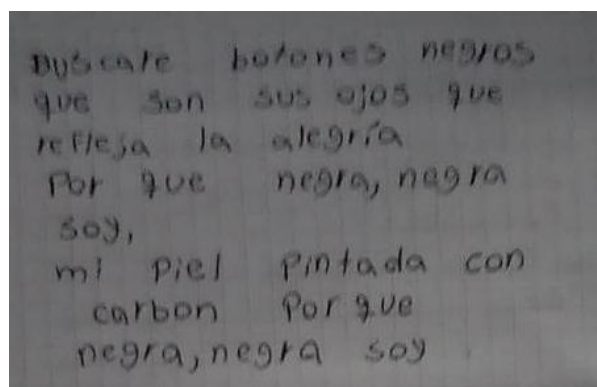 Buscate botones negros
que son sus ojos que
refleja la alegría
Por que negra, nagra
soy,
mi piel pintada con
carbon Por que
negra, negra soy